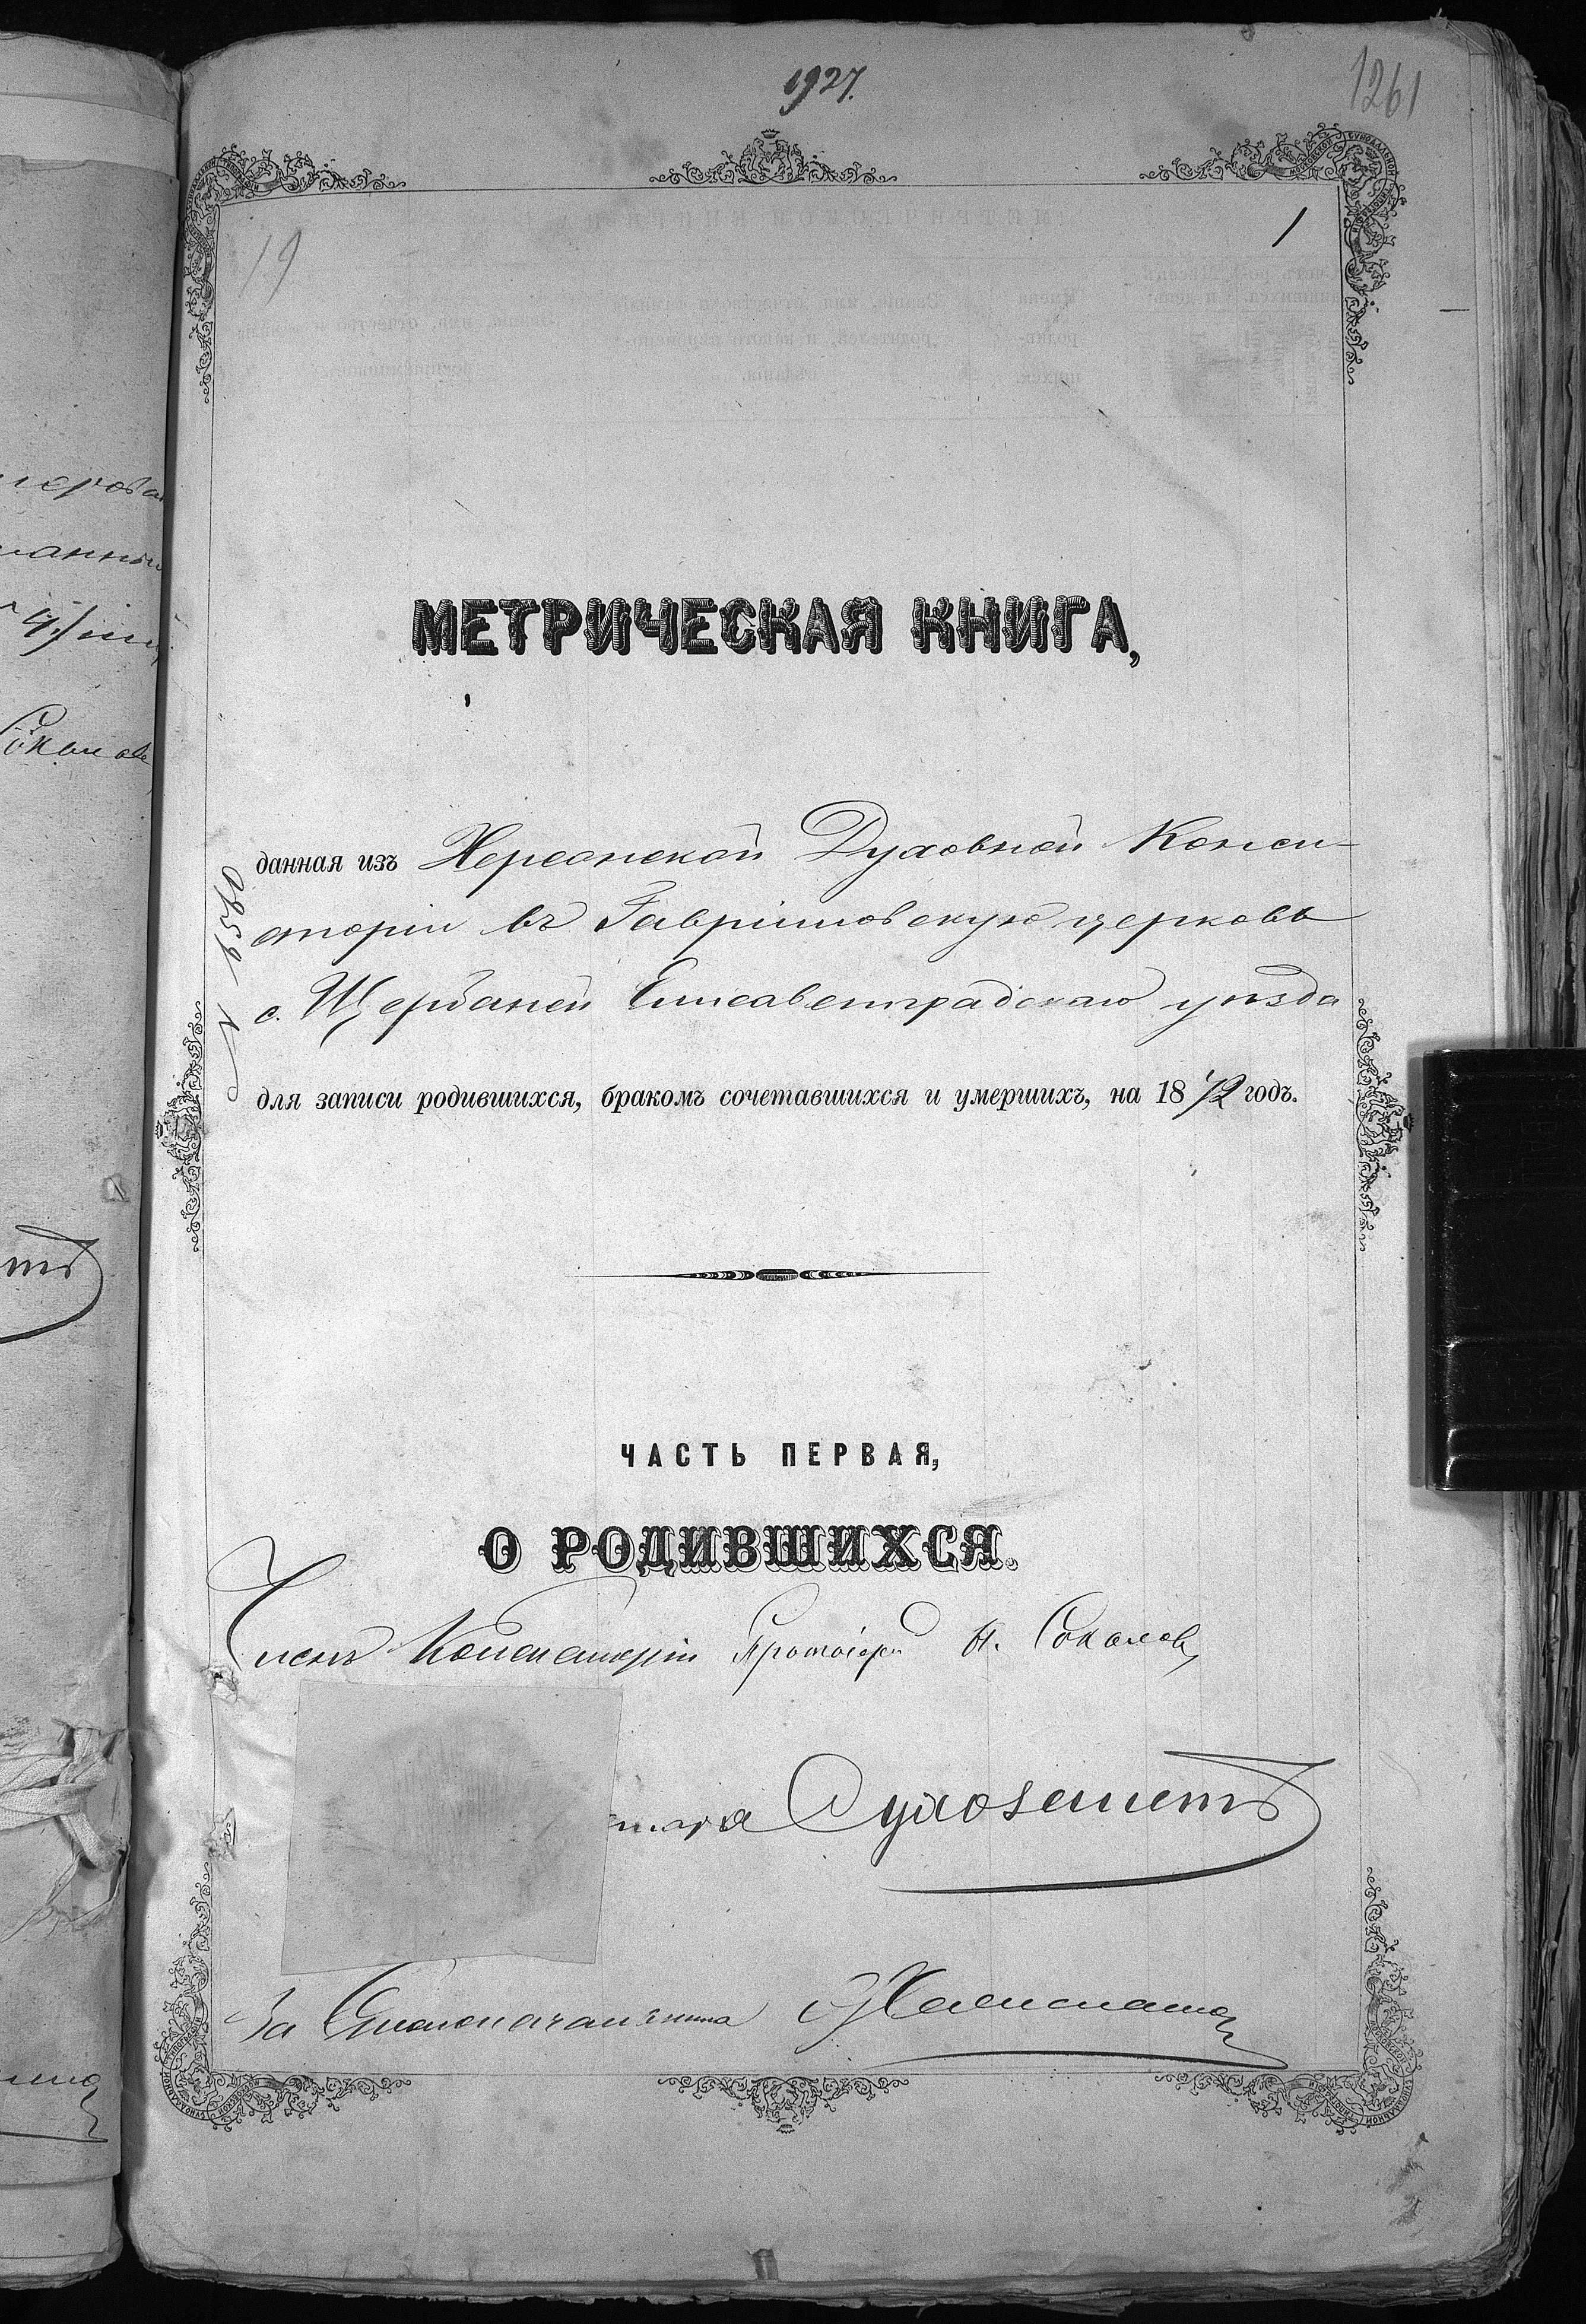 1927.
1261
19
1
МЕТРИЧЕСКАЯ КНИГА,
данная изъ Херсонской Духовной Конси-
сторіи въ Гавріиловскую церковь
с. Щербаней Елисаветградскаго уѣзда
для записи родившихся, бракомъ сочетавшихся и умершихъ, на 1872 годъ.
ЧАСТЬ ПЕРВАЯ,
О РОДИВШИХСЯ.
Членъ Консисторіи Протоіерей Н. Соколовъ
За Столоначальника